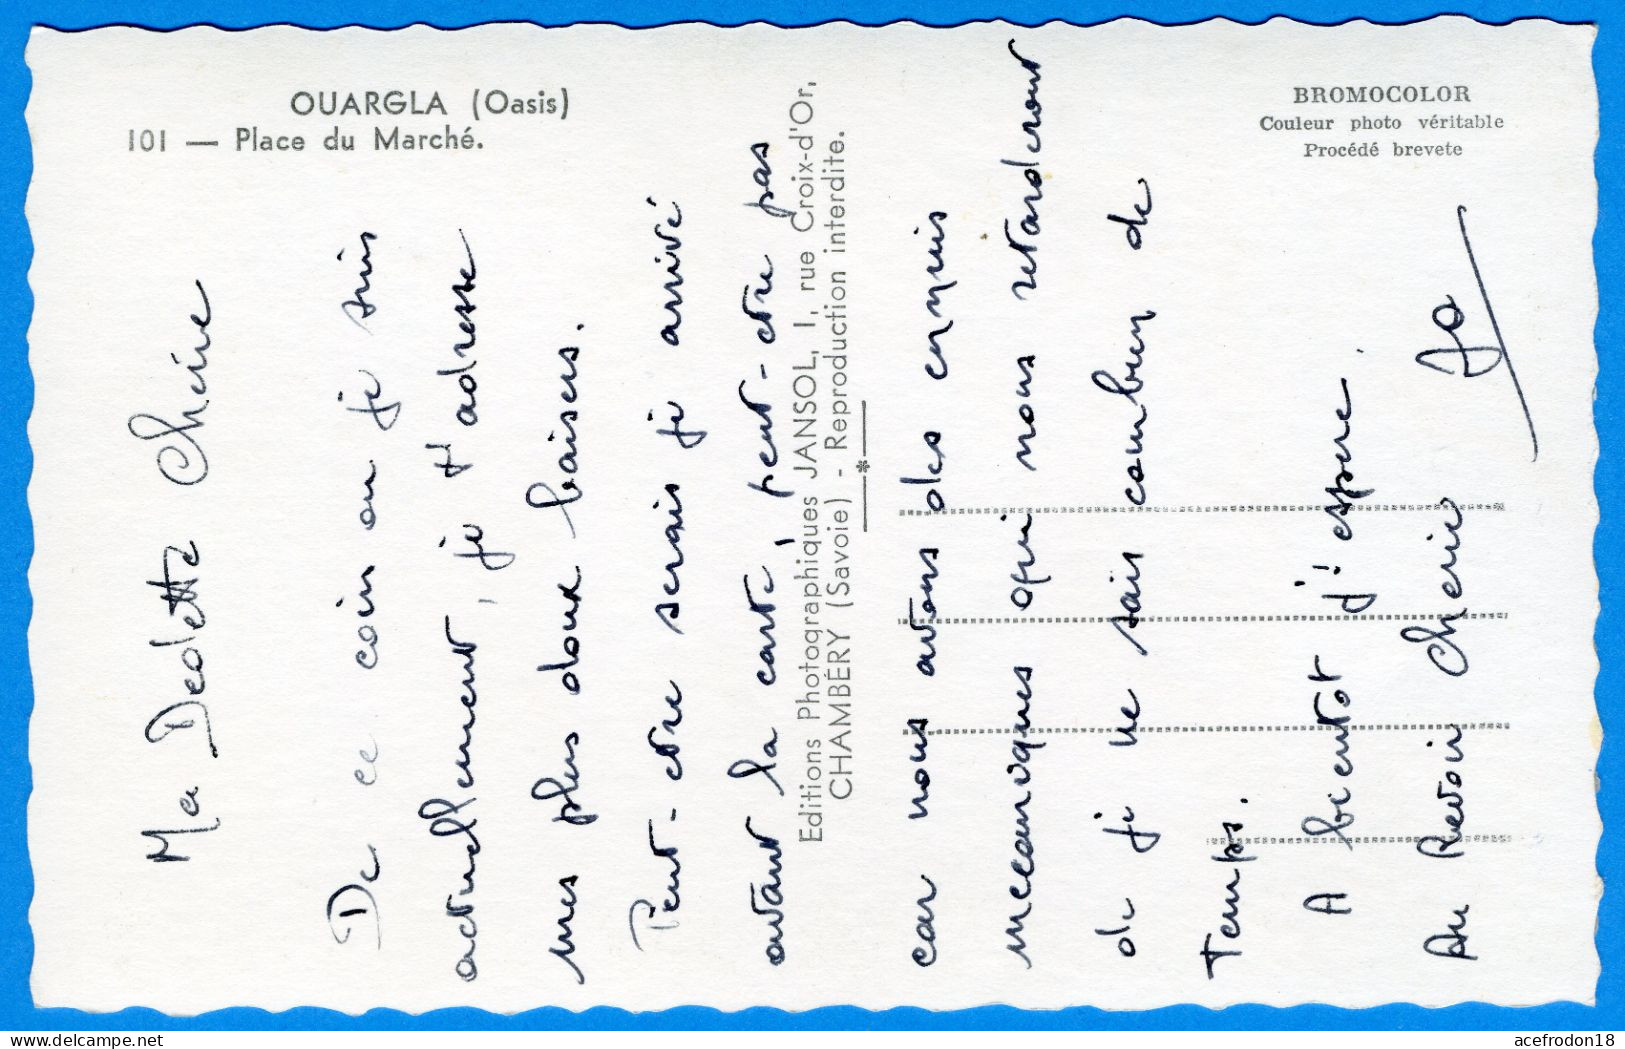 OUARGLA (Oasis)
101 — Place du Marché.
BROMOCOLOR
Couleur photo véritable
Procédé brevete
Editions Photographiques JANSOL, 1, rue Croix-d'Or,
CHAMBÉRY (Savoie) - Reproduction interdite.
Ma Dedette Cherie
De ce coin ou je suis
actuellement, je t'adresse
mes plus doux baisers.
Peut-etre serais je arrivé
avant la carte, peut-etre pas
car nous avons des ennuis
mecaniques qui nous retarderont
de je ne sais combien de
temps.
A bientot j'espere.
Au Revoir Cherie Jo
delcampe.net
acefrodon18